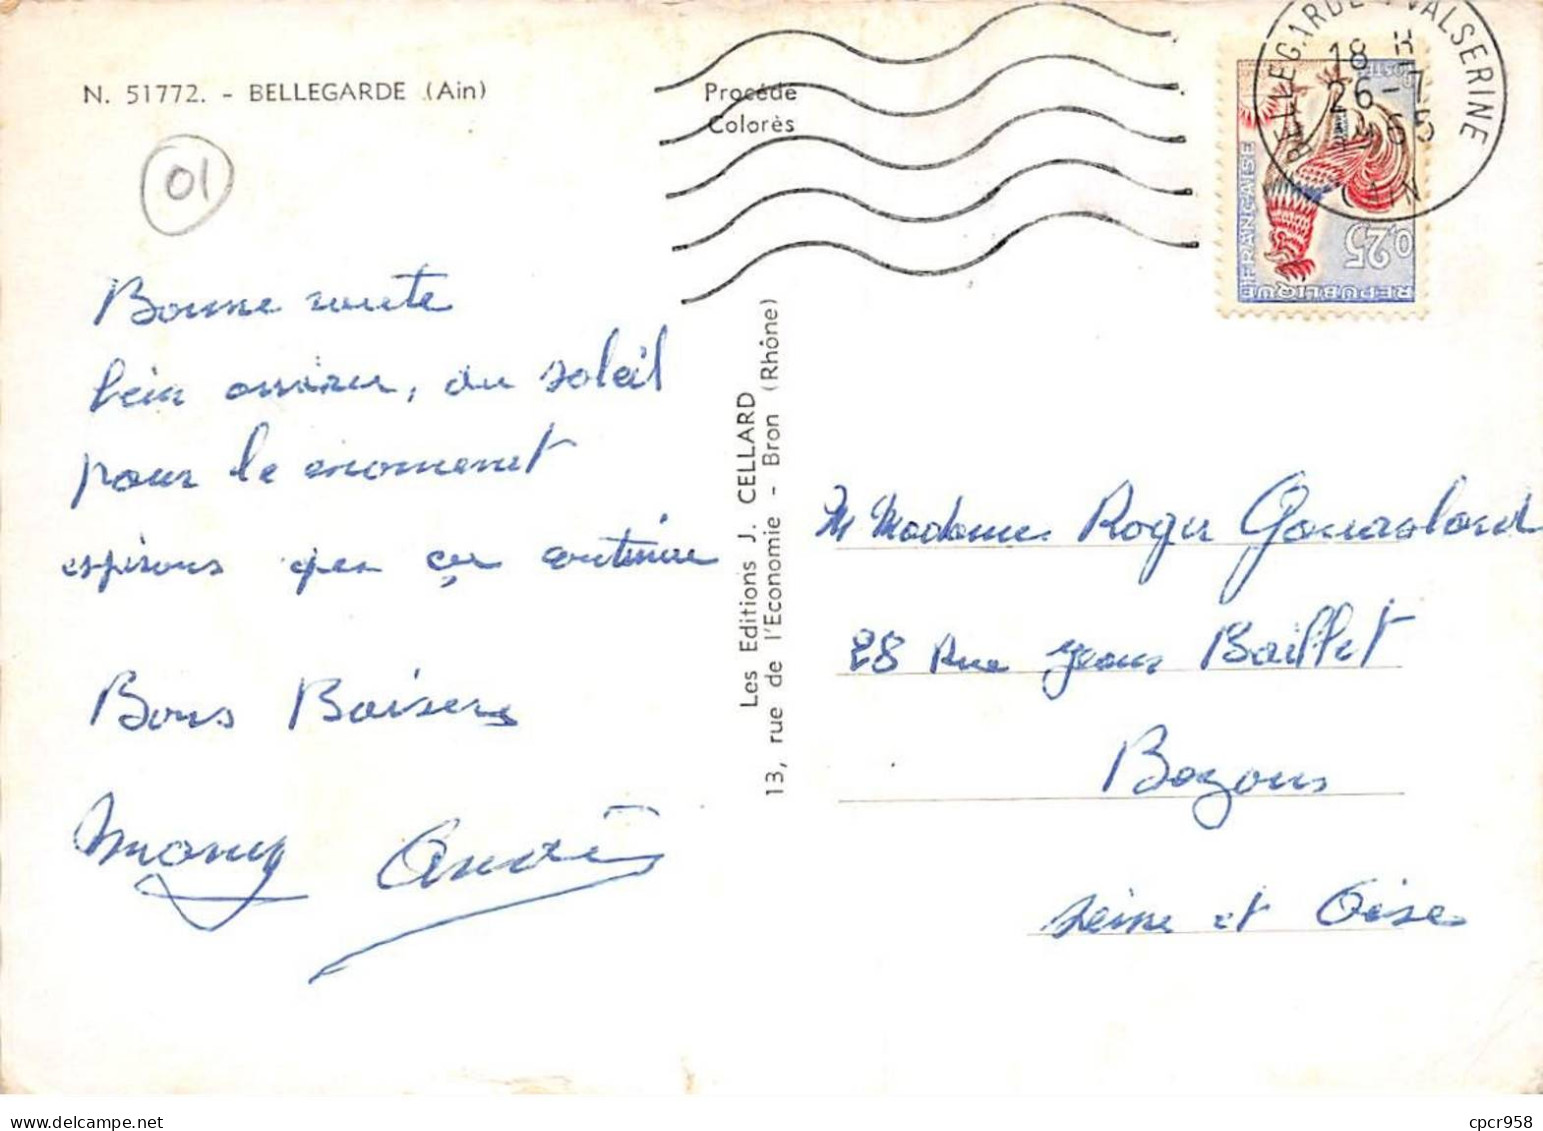 N. 51772. - BELLEGARDE (Ain)
Procédé
Colorès
01
Bonne route
bien arrivés, du soleil
pour le moment
espérons que ça continue
Bons Baisers
Mamy André
Les Editions J. CELLARD
13, rue de l'Economie - Bron (Rhône)
BELLEGARDE S VALSERINE
18 H
26 - 7
1965
AIN
REPUBLIQUE FRANÇAISE
0,25
POSTES
M Madame Roger
28 Rue Jean Baillet
Bezons
Seine et Oise
cpcr958